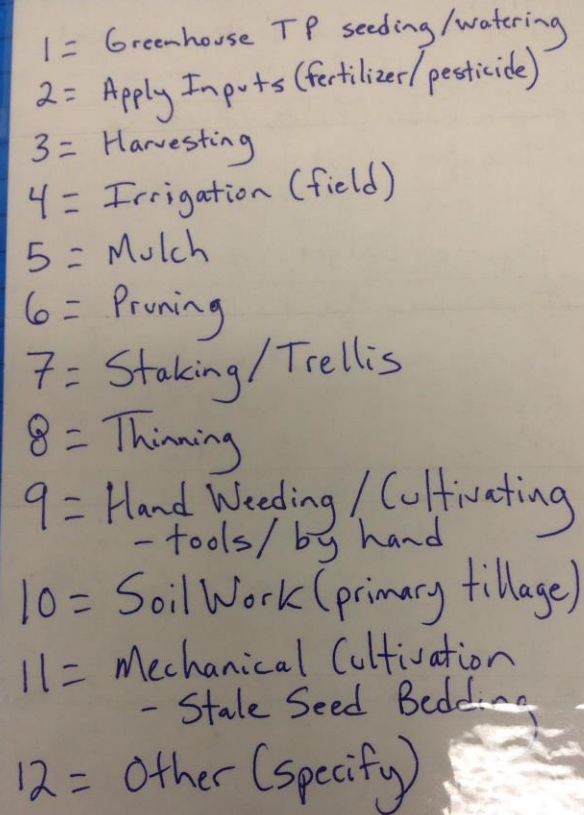 1 = Greenhouse TP seeding/watering
2 = Apply Inputs (fertilizer/pesticide)
3 = Harvesting
4 = Irrigation (field)
5 = Mulch
6 = Pruning
7 = Staking/Trellis
8 = Thinning
9 = Hand Weeding/Cultivating
- tools/by hand
10 = Soil Work (primary tillage)
11 = Mechanical Cultivation
- Stale Seed Bedding
12 = Other (specify)